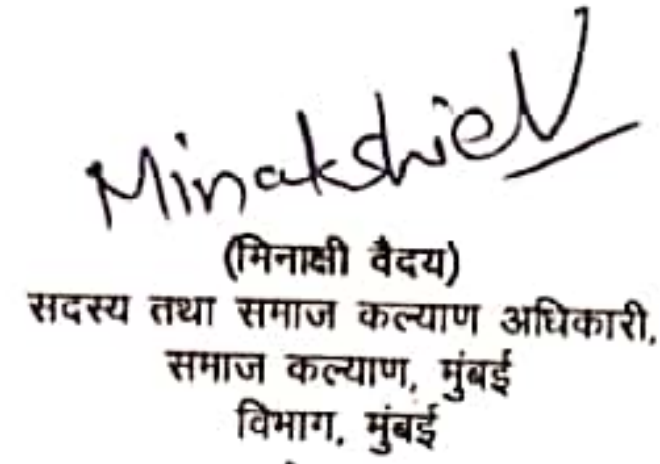 MinakshieV
(मिनाक्षी वैदय)
सदस्य तथा समाज कल्याण अधिकारी,
समाज कल्याण, मुंबई
विभाग, मुंबई